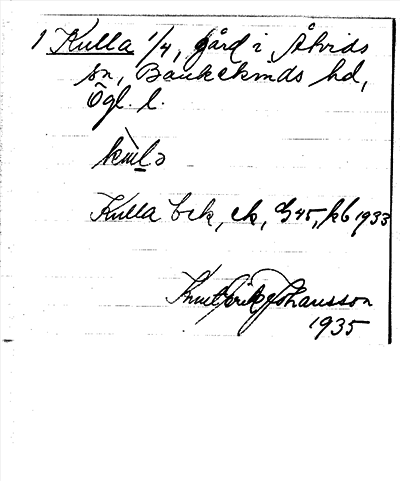 1 Kulla 1/4, gård i Åtvids
sn, Bankekinds hd,
Ögl. l.
Kulla bek, ek, G45, kb 1933
Knut Erik Johansson
1935